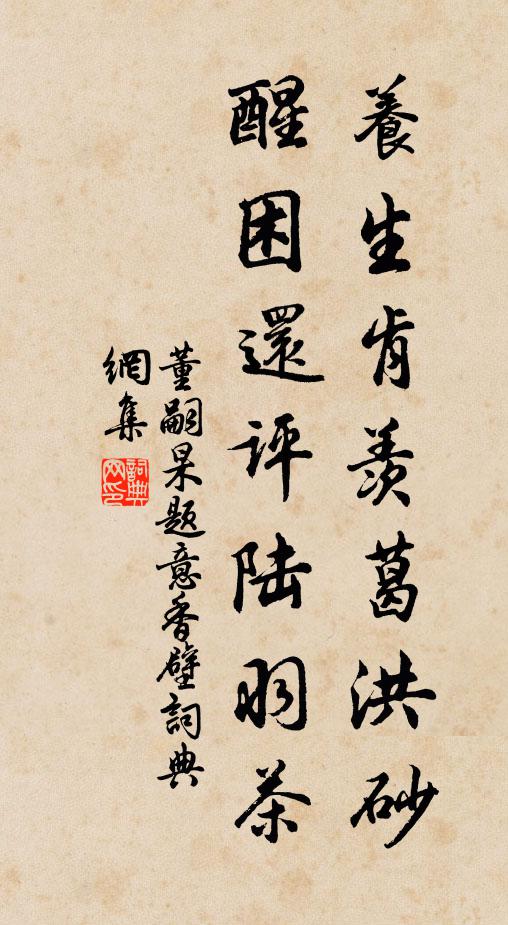 養生肯羨葛洪砂
醒困還評陆羽茶
董嗣杲題意香壁詞典
網集
詞典网印